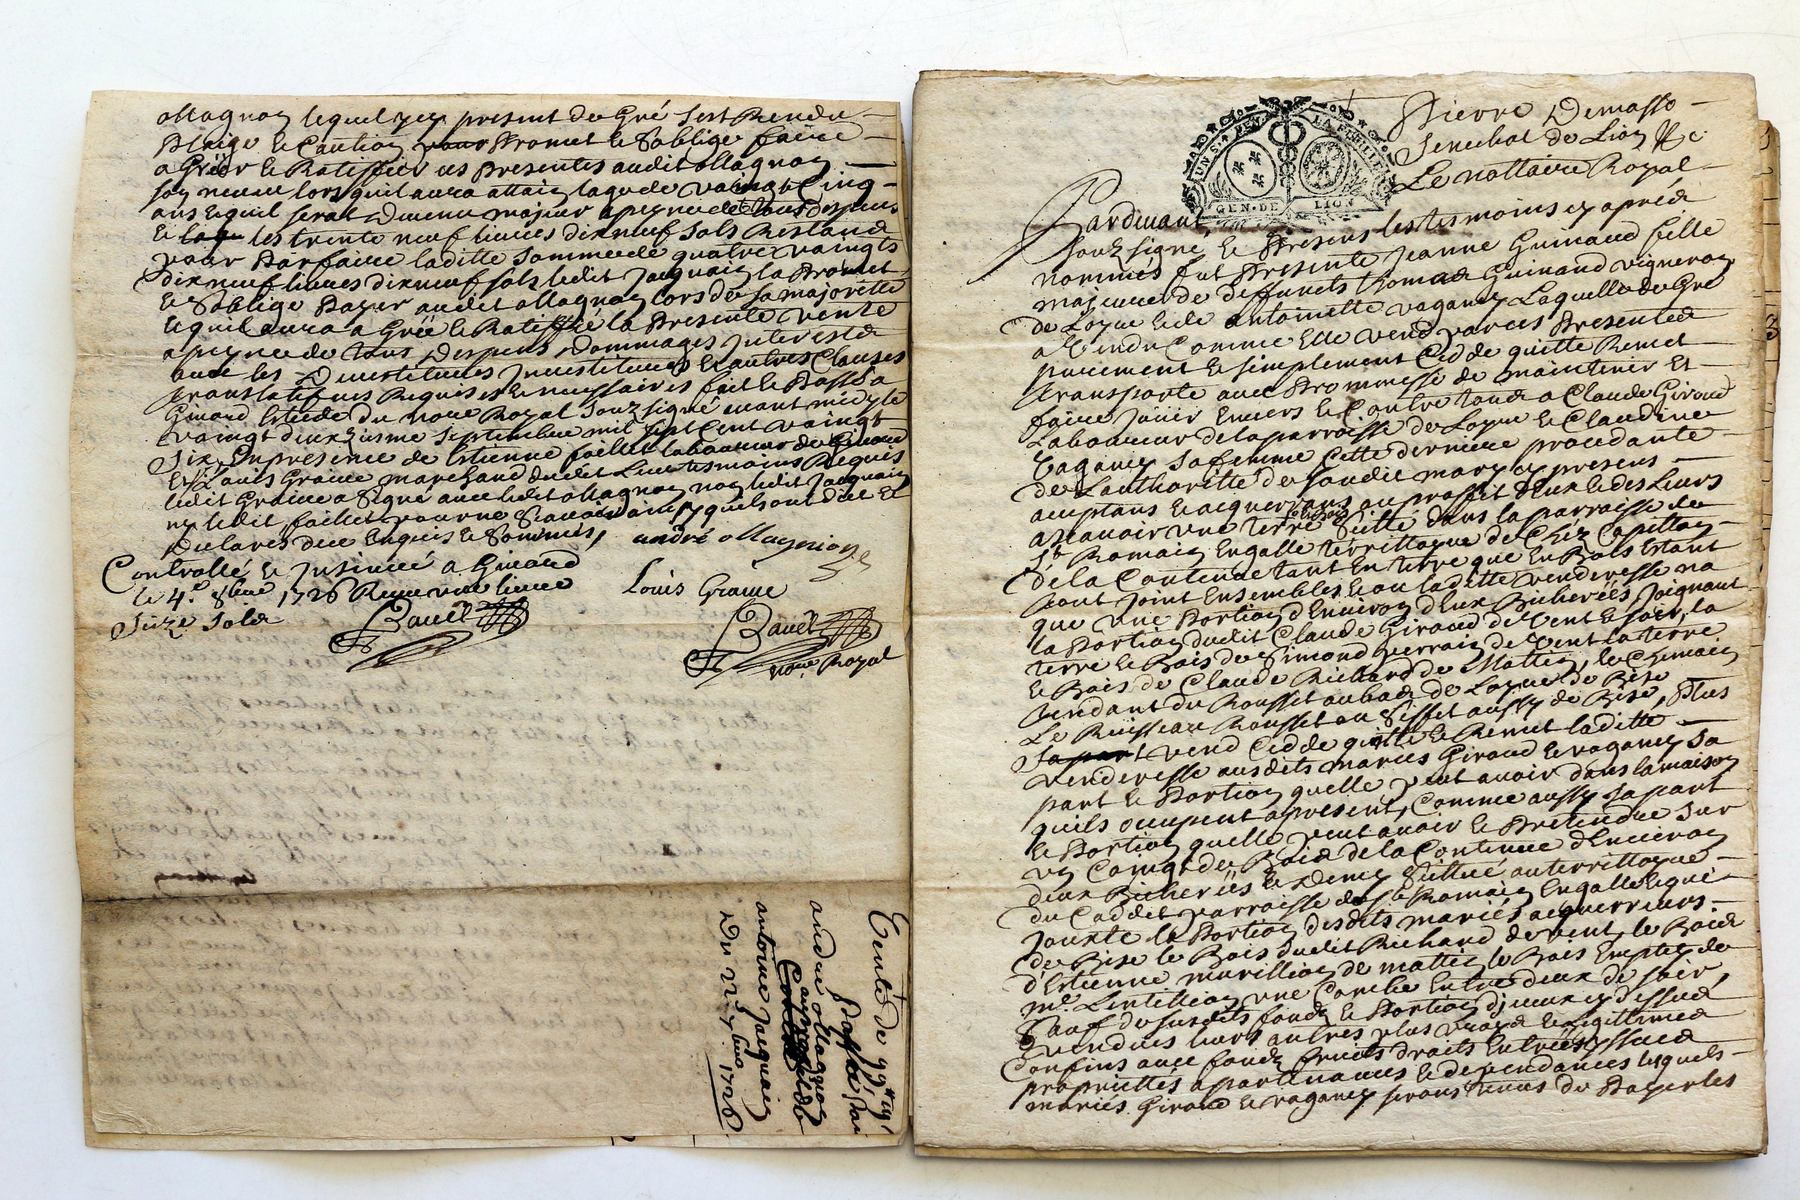 ollagnon lequel icy present de Gré sest Rendu
Pleige et Caution pour Promet et Soblige faire
a Gréer et Ratiffier ces presentes audit ollagnon
son neveu lors quil aura attain lage de vaingt Cinq
ans et quil serat devenu majeur a peyne de tous despens
et les trente neuf livres dix neuf sols Restand
pour Parfaire laditte somme de quatre vaingts
dix neuf livres dix neuf sols ledit Jacquain la Promet
et Soblige Payer audit ollagnon lors de sa majorette
et quil aura a Gréé et Ratiffié la Presente vente
a peyne de tous Despens Dommages Interests
avec les Devestitures Investitures et autres Clauses
translatifves Requises et necessaires fait et Passé a
Givord Estude du no.re Royal Souz signé avant midy le
vaingt deuxziesme septembre mil sept Cent vaingt
six En presence de Estienne faillet laboureur de Givord
et Louis Graine marchand dudit Lieu tesmoins Requis
ledit Graine a Signé avec ledit ollagnon non ledit Jacquain
ny ledit faillet pour ne scavoir ainsy quils ont dict et
Declarés de ce Enquis et Sommés,
andré ollagnion
Controllé et Insinué a Givord
le 4.e 8bre 1726 Receu une livre
Seize sols
Louis Graine
Bauet
Bauet
no.re Royal
Vente de 99 ll 19 s
Passé par
andré ollagnon
au proffit de
antoine Jacquain
Du 22.e 7bre 1726
UN S. 4 DEN. LA FEUILLE
GEN. DE LION
Pierre Demasso
Senechal de Lion &c
Pardevant Le nottaire Royal
souz signé et Presens les tesmoins cy aprés
nommés fut Presente Jeanne Guinand fille
majeure de deffuncts Thomas Guinand vigneron
de Loyre et de antoinette vaganey Laquelle de Gré
a Vendu Comme Elle vend par ces Presentes
purement et simplement Cedde quitte Remet
transporte avec Prommesse de maintenir et
faire Jouir Envers et Contre tous a Claude Giroud
Laboureur de la parroisse de Loyre et Claudine
vaganey sa femme cette derniere procedante
de Lauthoritté de soudit mary cy presens
aceptans et acquerians au proffit deux et des Leurs
ascavoir une terre et bois Scittué dans la parroisse de
S.t Romain En galle territtoyre de Chéz Capittan
de la Contenue tant En terre que En Bois Estant
tout Joint Ensembles et ou laditte venderesse na
que une Portion d'Environ deux Bicherées Joignant
la Portion dudit Claude Giroud de vent et soir, la
terre et Bois de Simond Perrain de vent la terre
et Bois de Claude Richard de Mattin, le Chemain
tendant du Rousset au bas de Loyre de Bise
Le Ruisseau Rousset ou Siffet aussy de Bise, Plus
vend Cedde quitte et Remet laditte
venderesse ausdits mariés Giroud et vaganey sa
part et Portion quelle peut avoir dans la maison
quils occupent apresent, Comme aussy sa part
et Portion quelle peut avoir et Pretendre sur
un Coing de Bois de la Contenue d'Environ
deux Bicherées et Demy Scittué au territtoyre
du Caddet parroisse de S.t Romain En galle
Jouxte la Portion desdits mariés acquerreurs
de Bise le Bois dudit Richard de vent, le Bois
d'Estienne marillion de mattin le Bois
m.e Lentillion une Combe Entre deux de soir,
Sauf desusdits fonds et Portion
vendues leurs autres plus vrays et Legittimes
Confins avec fonds fruits droits Entrées yssues
proprietés apartenances et dependances lesquels
mariés Giroud et vaganey serons tenus de Payer les